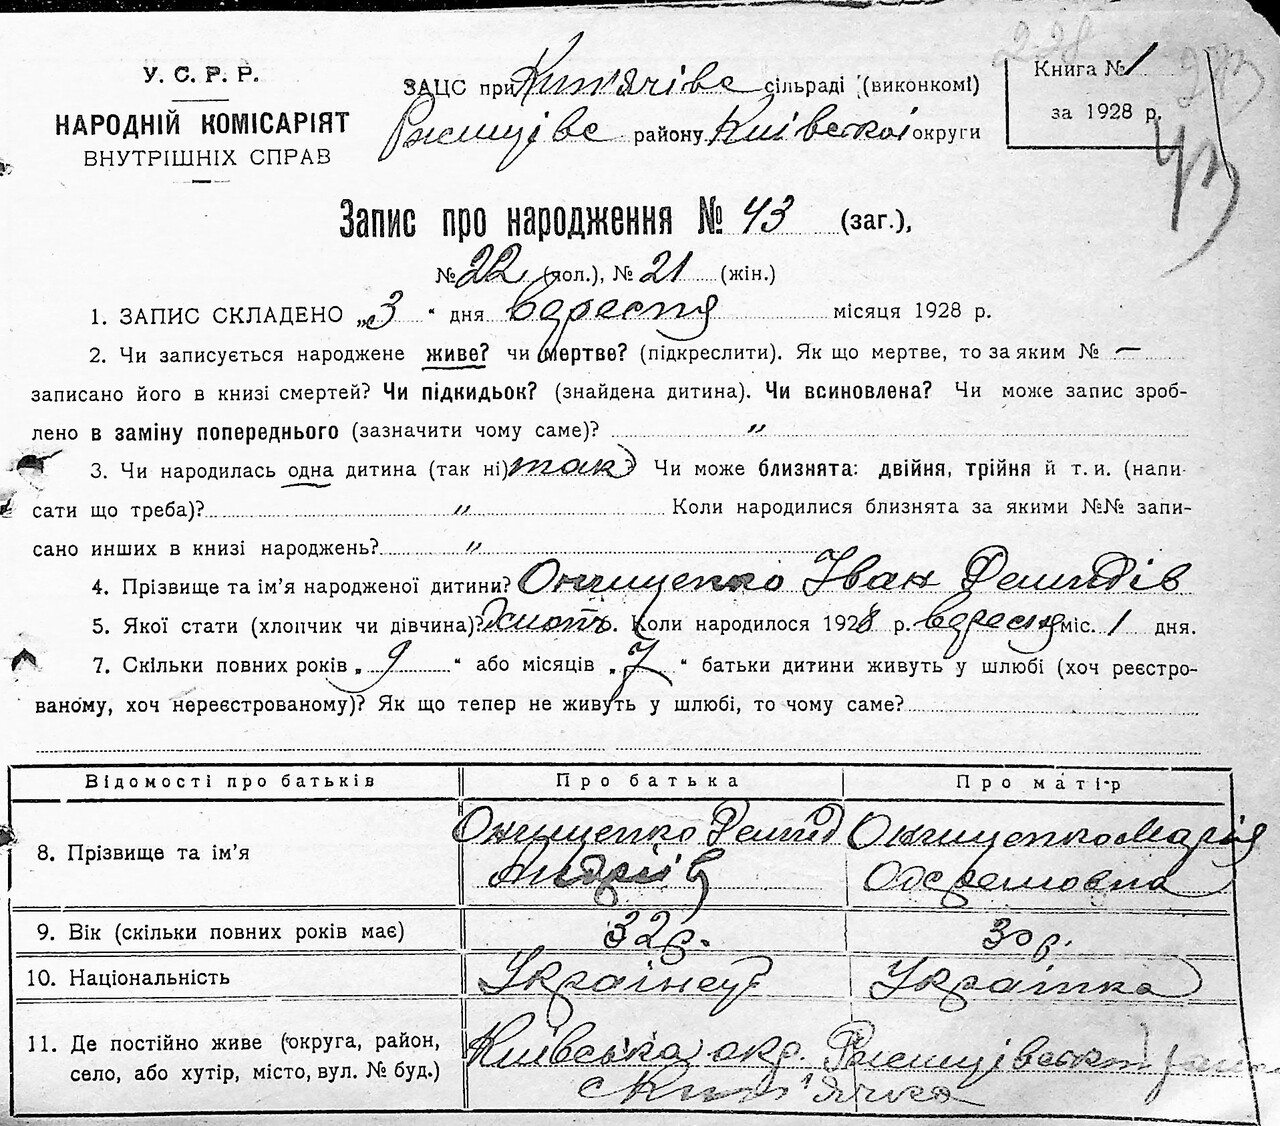 228
293
У. С. Р. Р.
НАРОДНІЙ КОМІСАРІЯТ
ВНУТРІШНІХ СПРАВ
ЗАЦС при сільраді (виконкомі)
району Київської округи
Книга № 1
за 1928 р.
43
Запис про народження № 43 (заг.),
№ 22 (чол.), № 21 (жін.)
1. ЗАПИС СКЛАДЕНО „3 " дня вересня місяця 1928 р.
2. Чи записується народжене живе? чи мертве? (підкреслити). Як що мертве, то за яким № —
записано його в книзі смертей? Чи підкидьок? (знайдена дитина). Чи всиновлена? Чи може запис зроб-
лено в заміну попереднього (зазначити чому саме)? "
3. Чи народилась одна дитина (так ні) так Чи може близнята: двійня, трійня й т. и. (напи-
сати що треба)? " Коли народилися близнята за якими №№ запи-
сано инших в книзі народжень? "
4. Прізвище та ім'я народженої дитини? Онищенко Іван Демидів
5. Якої стати (хлопчик чи дівчина)? Коли народилося 1928 р. вересня міс. 1 дня.
7. Скільки повних років „ 9 " або місяців „ 7 " батьки дитини живуть у шлюбі (хоч реєстро-
ваному, хоч нереєстрованому)? Як що тепер не живуть у шлюбі, то чому саме?
Відомості про батьків Про батька Про матір
8. Прізвище та ім'я Онищенко Демид Онищенко Марія
Андріїв
9. Вік (скільки повних років має) 32 р. 30 р.
10. Національність Українець Українка
11. Де постійно живе (округа, район, Київська окр.
село, або хутір, місто, вул. № буд.)